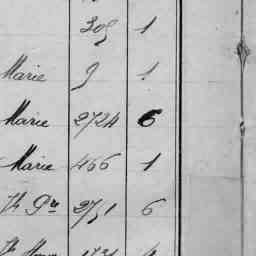 305 1
Marie 9 1
Marie 2724 6
Marie 466 1
2751 6